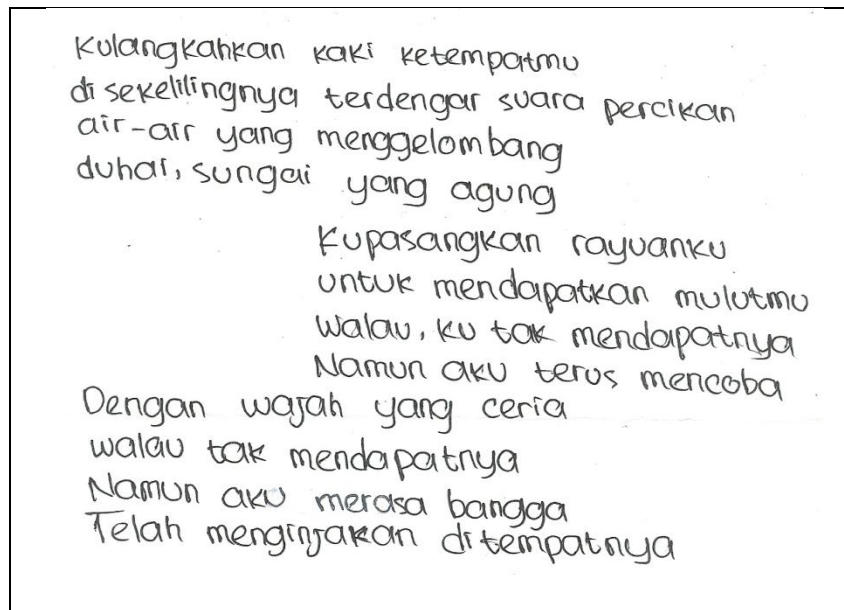 Kulangkahkan kaki ketempatmu
di sekelilingnya terdengar suara percikan
air-air yang menggelombang
duhai, sungai yang agung
Kupasangkan rayuanku
untuk mendapatkan mulutmu
walau, ku tak mendapatnya
Namun aku terus mencoba
Dengan wajah yang ceria
walau tak mendapatnya
Namun aku merasa bangga
Telah menginjakan ditempatnya